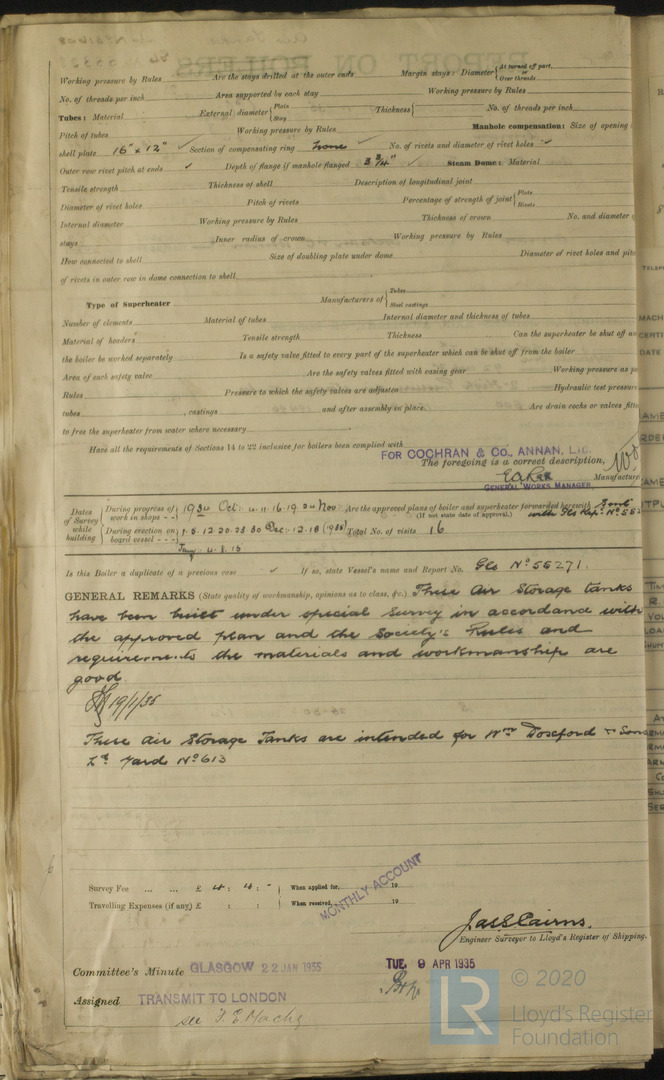 Working pressure by Rules Are the stays drilled at the outer ends Margin stays: Diameter { At turned off part, or Over threads
No. of threads per inch Area supported by each stay Working pressure by Rules
Tubes: Material External diameter { Plain Stay Thickness { No. of threads per inch
Pitch of tubes Working pressure by Rules Manhole compensation: Size of opening
shell plate 16" x 12" ✓ Section of compensating ring None ✓ No. of rivets and diameter of rivet holes ✓
Outer row rivet pitch at ends ✓ Depth of flange if manhole flanged 3 3/4" ✓ Steam Dome: Material
Tensile strength Thickness of shell Description of longitudinal joint
Diameter of rivet holes Pitch of rivets Percentage of strength of joint { Plate Rivets
Internal diameter Working pressure by Rules Thickness of crown No. and diameter
stays Inner radius of crown Working pressure by Rules
How connected to shell Size of doubling plate under dome Diameter of rivet holes and pitch
of rivets in outer row in dome connection to shell
Type of Superheater Manufacturers of { Tubes Steel castings
Number of elements Material of tubes Internal diameter and thickness of tubes
Material of headers Tensile strength Thickness Can the superheater be shut off an
the boiler be worked separately Is a safety valve fitted to every part of the superheater which can be shut off from the boiler
Area of each safety valve Are the safety valves fitted with easing gear Working pressure as p
Rules Pressure to which the safety valves are adjusted Hydraulic test pressure
tubes , castings and after assembly in place Are drain cocks or valves fitt
to free the superheater from water where necessary
Have all the requirements of Sections 14 to 22 inclusive for boilers been complied with
FOR COCHRAN & CO., ANNAN, LTD.
The foregoing is a correct description,
Manufacture
GENERAL WORKS MANAGER.
Dates of Survey while building { During progress of work in shops - - } 1934 Oct: 4. 11. 16. 19. 24 Nov: Are the approved plans of boiler and superheater forwarded herewith Sent
(If not state date of approval.) with Gls Rep. No 552
{ During erection on board vessel - - - } 1. 5. 12. 20. 23. 30 Dec: 12. 18 (1935) Total No. of visits 16
Jany: 4. 8. 15
Is this Boiler a duplicate of a previous case ✓ If so, state Vessel's name and Report No. Gls No 55271.
GENERAL REMARKS (State quality of workmanship, opinions as to class, &c.) These Air Storage tanks
have been built under special survey in accordance with
the approved plan and the Society's Rules and
requirements the materials and workmanship are
good.
19/1/35
These Air Storage Tanks are intended for Wm Doxford & Sons
Ld Yard No 613
Survey Fee ... ... £ 4 : 4 : - When applied for, 19
Travelling Expenses (if any) £ : : When received, 19
MONTHLY ACCOUNT
Jas S Cairns.
Engineer Surveyor to Lloyd's Register of Shipping.
Committee's Minute GLASGOW 22 JAN 1935 TUE. 9 APR 1935
Assigned TRANSMIT TO LONDON
see F. E. Machy
LR
© 2020
Lloyd's Register
Foundation